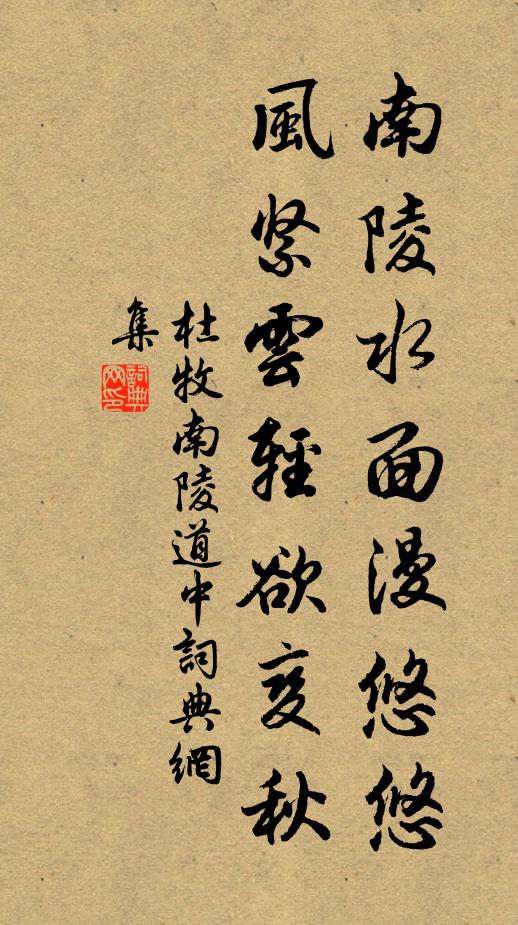 南陵水面漫悠悠
風緊雲輕欲变秋
杜牧南陵道中詞典網
集
詞典
网印